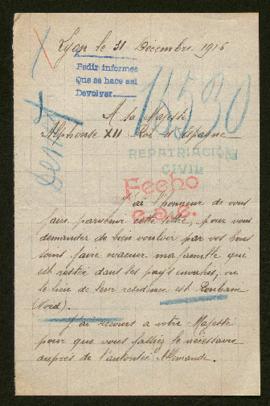 Lyon le 21 Décembre 1916
Pedir informes
Que se hace así
Devolver
11530
A Sa Majesté
Alphonse XII Roi d'Espagne
REPATRIACIÓN
CIVIL
Fecho
J'ai l'honneur de vous
faire parvenir cette lettre, pour vous
demander de bien vouloir par vos bons
soins faire évacuer ma famille qui
est restée dans les pays envahis, ou
le lieu de leur résidence est Roubaix
(Nord).
J'ai recours a votre Majesté
pour que vous fassiez le nécessaire
auprès de l'autorité Allemande.